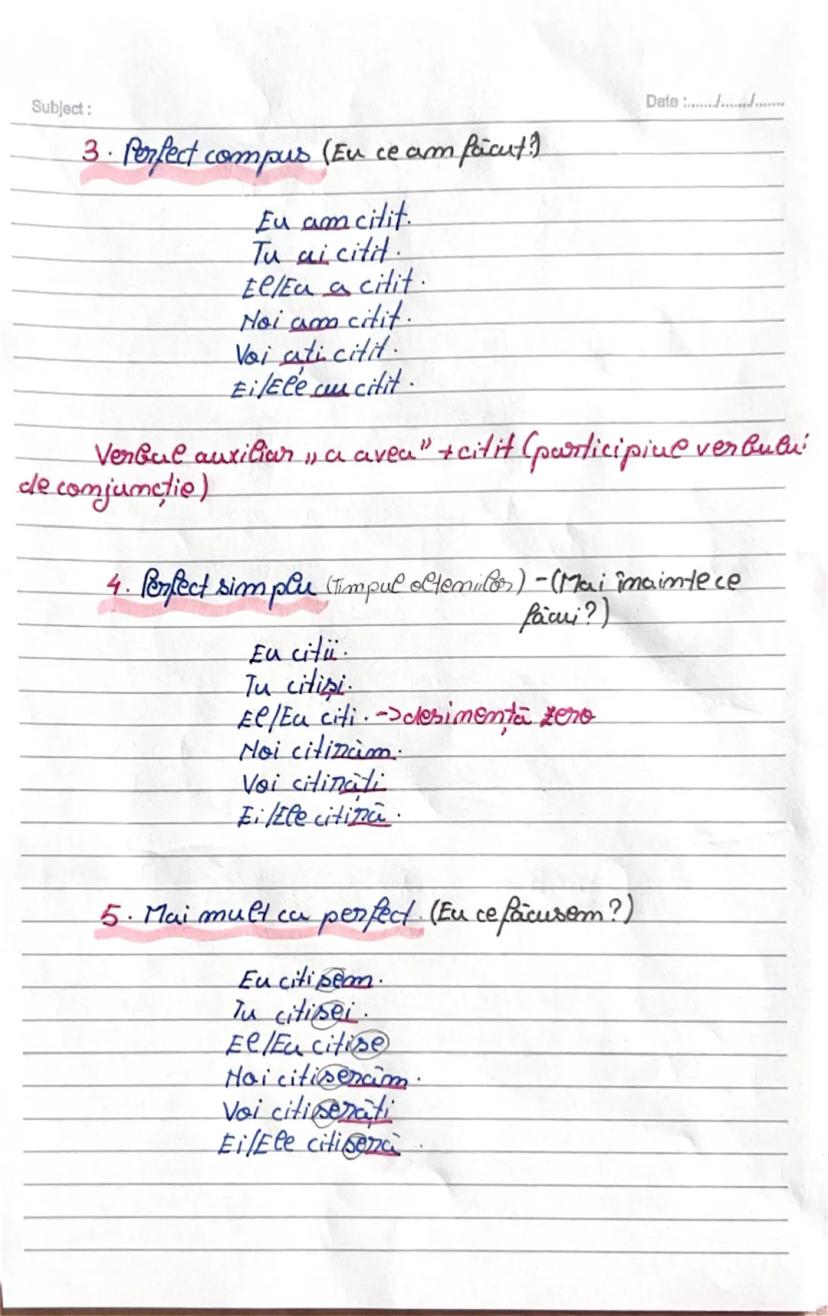 Subject :
Date :....../....../......
3. Perfect compus (Eu ce am făcut?)
Eu am citit.
Tu ai citit.
El/Ea a citit.
Noi am citit.
Voi ați citit.
Ei/Ele au citit.
Verbul auxiliar „a avea" + citit (participiul verbului
de conjuncție)
4. Perfect simplu (Timpul oltenilor) - (Mai înainte ce
făcui?)
Eu citii.
Tu citiși.
El/Ea citi. -> desinență zero
Noi citirăm.
Voi citirăți
Ei/Ele citiră.
5. Mai mult ca perfect. (Eu ce făcusem?)
Eu citisem.
Tu citisei.
El/Ea citise
Noi citiserăm.
Voi citiserăți
Ei/Ele citiseră.